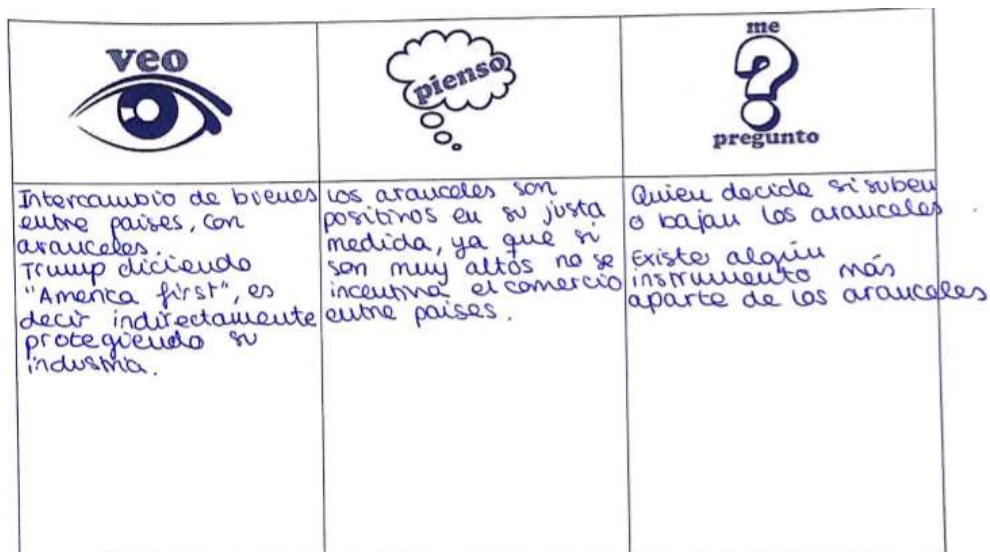 veo
pienso
me
pregunto
Intercambio de bienes
entre paises, con
aranceles.
Trump diciendo
"America first", es
decir indirectamente
protegiendo su
industria.
Los aranceles son
positivos en su justa
medida, ya que si
son muy altos no se
incentiva el comercio
entre paises.
Quien decide si suben
o bajan los aranceles.
Existe algún
instrumento más
aparte de los aranceles